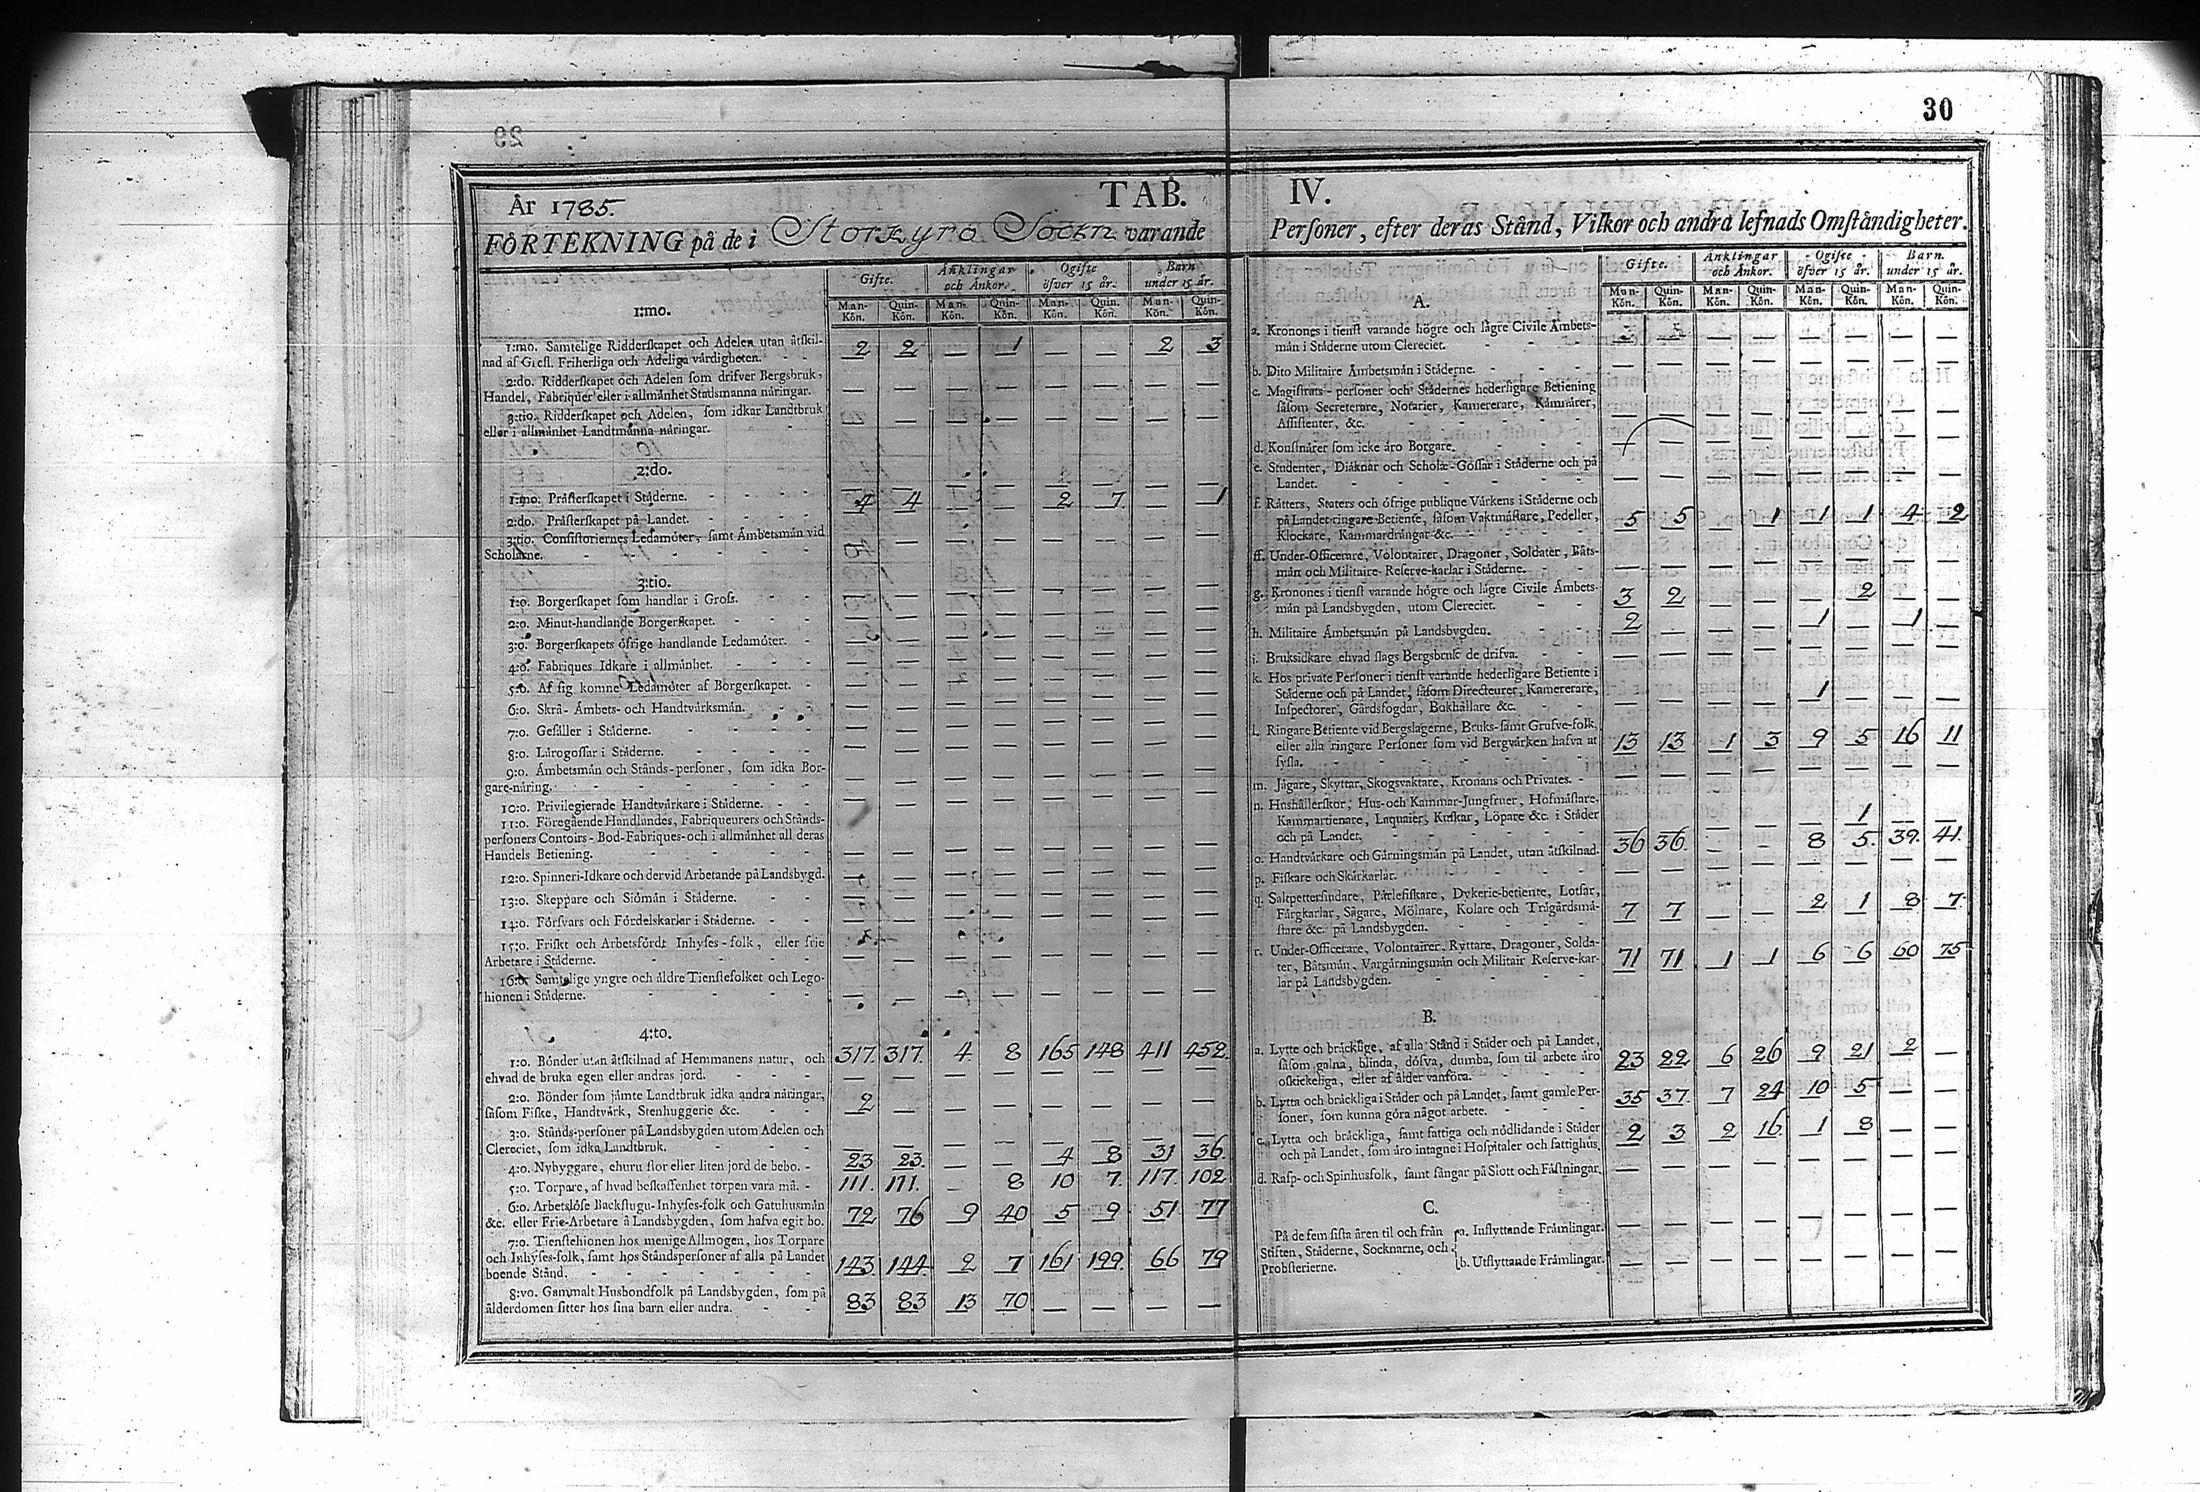 30
År 1785.
TAB. IV.
FÖRTEKNING på de i Storkyro Sockn varande Personer, efter deras Stånd, Vilkor och andra lefnads Omståndigheter.
Gifte. Änklingar och Ankor. Ogifte öfver 15 år. Barn under 15 år.
Man-Kön. Quin-Kön. Man-Kön. Quin-Kön. Man-Kön. Quin-Kön. Man-Kön. Quin-Kön.
1:mo.
1:mo. Samtelige Ridderskapet och Adelen utan åtskil-
nad af Grefl. Friherliga och Adeliga vårdigheten. 2 2 — 1 — — 2 3
2:do. Ridderskapet och Adelen som drifver Bergsbruk,
Handel, Fabriquer eller i allmånhet Stadsmanna nåringar. — — — — — — — —
3:tio. Ridderskapet och Adelen, som idkar Landtbruk
eller i allmånhet Landtmanna nåringar. — — — — — — — —
2:do.
1:mo. Pråsterskapet i Ståderne. — — — — — — — —
2:do. Pråsterskapet på Landet. 4 4 — — 2 7 — 1
3:tio. Consistoriernes Ledamöter, samt Åmbetsmån vid
Scholarne. — — — — — — — —
3:tio.
1:o. Borgerskapet som handlar i Gross. — — — — — — — —
2:o. Minut-handlande Borgerskapet. — — — — — — — —
3:o. Borgerskapets öfrige handlande Ledamöter. — — — — — — — —
4:o. Fabriques Idkare i allmånhet. — — — — — — — —
5:o. Af sig komne Ledamöter af Borgerskapet. — — — — — — — —
6:o. Skrå- Åmbets- och Handtvårksmån. — — — — — — — —
7:o. Gesåller i Ståderne. — — — — — — — —
8:o. Lårogossar i Ståderne. — — — — — — — —
9:o. Åmbetsmån och Stånds-personer, som idka Bor-
gare-nåring. — — — — — — — —
10:o. Privilegierade Handtvårkare i Ståderne. — — — — — — — —
11:o. Föregående Handlandes, Fabriqueurers och Stånds-
personers Contoirs- Bod-Fabriques- och i allmånhet all deras
Handels Betiening. — — — — — — — —
12:o. Spinneri-Idkare och dervid Arbetande på Landsbygd. — — — — — — — —
13:o. Skeppare och Siömån i Ståderne. — — — — — — — —
14:o. Försvars och Fördelskarlar i Ståderne. — — — — — — — —
15:o. Friskt och Arbetsfördt Inhyses-folk, eller frie
Arbetare i Ståderne. — — — — — — — —
16:o. Samtelige yngre och åldre Tienstefolket och Lego-
hionen i Ståderne. — — — — — — — —
4:to.
1:o. Bönder utan åtskilnad af Hemmanens natur, och
ehvad de bruka egen eller andras jord. 317. 317. 4. 8 165 148 411 452.
2:o. Bönder som jåmte Landtbruk idka andra nåringar,
såsom Fiske, Handtvårk, Stenhuggerie &c. — — — — — — — —
3:o. Stånds-personer på Landsbygden utom Adelen och
Clereciet, som idka Landtbruk. 2 — — — — — — —
4:o. Nybyggare, ehuru stor eller liten jord de bebo. 23 23. — — 4 8 31 36.
5:o. Torpare, af hvad beskaffenhet torpen vara må. 111. 111. — 8 10 7. 117. 102
6:o. Arbetslöse Backstugu- Inhyses-folk och Gatuhusmån
&c. eller Frie-Arbetare å Landsbygden, som hafva egit bo. 72 76 9 40 5 9 51 77
7:o. Tienstehionen hos menige Allmogen, hos Torpare
och Inhyses-folk, samt hos Ståndspersoner af alla på Landet
boende Stånd. 143 144. 2 7 161 199. 66 79
8:vo. Gammalt Husbondfolk på Landsbygden, som på
ålderdomen sitter hos sina barn eller andra. 83 83 13 70 — — — —
Gifte. Änklingar och Ankor. Ogifte öfver 15 år. Barn. under 15 år.
Man-Kön. Quin-Kön. Man-Kön. Quin-Kön. Man-Kön. Quin-Kön. Man-Kön. Quin-Kön.
A.
a. Kronones i tienst varande högre och lågre Civile Åmbets-
mån i Ståderne utom Clereciet. — — — — — —
b. Dito Militaire Åmbetsmån i Ståderne. — — — — — — — —
c. Magistrats-personer och Stådernes hederligare Betiening
såsom Secreterare, Notarier, Kamererare, Kåmnårer,
Assistenter, &c. — — — — — — — —
d. Konstnårer som icke åro Borgare. — — — — — — — —
e. Studenter, Diåknar och Scholæ-Gossar i Ståderne och på
Landet. — — — — — — — —
f. Råtters, Staters och öfrige publique Vårkens i Ståderne och
på Landet ringare Betiente, såsom Vaktmåstare, Pedeller,
Klockare, Kammardrångar &c. 5 5 — 1 1 1 4 2
ff. Under-Officerare, Volontairer, Dragoner, Soldater, Båts-
mån och Militaire Reserve-karlar i Ståderne. — — — — — — — —
g. Kronones i tienst varande högre och lågre Civile Åmbets-
mån på Landsbygden, utom Clereciet. 3 2 — — — 2 — —
h. Militaire Åmbetsmån på Landsbygden. 2 — — — 1 — 1 —
i. Bruksidkare ehvad slags Bergsbruk de drifva. — — — — — — — —
k. Hos private Personer i tienst varande hederligare Betiente i
Ståderne och på Landet, såsom Directeurer, Kamererare,
Inspectorer, Gårdsfogdar, Bokhållare &c. — — — — 1 — — —
l. Ringare Betiente vid Bergslagerne, Bruks- samt Grufve-folk,
eller alla ringare Personer som vid Bergvårken hafva at
syssla. 13 13 1 3 9 5 16 11
m. Jågare, Skyttar, Skogsvaktare, Kronans och Privates. — — — — — — — —
n. Hushållerskor, Hus- och Kammar-Jungfruer, Hofmåstare,
Kammartienare, Laquaier, Kuskar, Löpare &c. i Ståder
och på Landet. — — — — — 1 — —
o. Handtvårkare och Gårningsmån på Landet, utan åtskilnad. 36 36. — — 8 5. 39. 41.
p. Fiskare och Skårkarlar. — — — — — — — —
q. Saltpettersiudare, Pårlefiskare, Dykerie-betiente, Lotsar,
Fårgkarlar, Sågare, Mölnare, Kolare och Trågårdsmå-
stare &c. på Landsbygden. 7 7 — — 2 1 8 7.
r. Under-Officerare, Volontairer, Ryttare, Dragoner, Solda-
ter, Båtsmån, Vargårningsmån och Militair Reserve-kar-
lar på Landsbygden. 71 71 1 1 6 6 60 75
B.
a. Lytte och bråcklige, af alla Stånd i Ståder och på Landet,
såsom galna, blinda, döfva, dumba, som til arbete åro
oskickeliga, eller af ålder vanföra. 23 22 6 26 9 21 2 —
b. Lytta och bråckliga i Ståder och på Landet, samt gamle Per-
soner, som kunna göra något arbete. 35 37. 7 24 10 5 — —
c. Lytta och bråckliga, samt fattiga och nödlidande i Ståder
och på Landet, som åro intagne i Hospitaler och fattighus. 2 3 2 16. 1 8 — —
d. Rasp- och Spinhusfolk, samt fångar på Slott och Fåstningar. — — — — — — — —
C.
På de fem sista åren til och från
Stiften, Ståderne, Socknarne, och
Probsterierne.
a. Inflyttande Fråmlingar. — — — — — — — —
b. Utflyttande Fråmlingar. — — — — — — — —